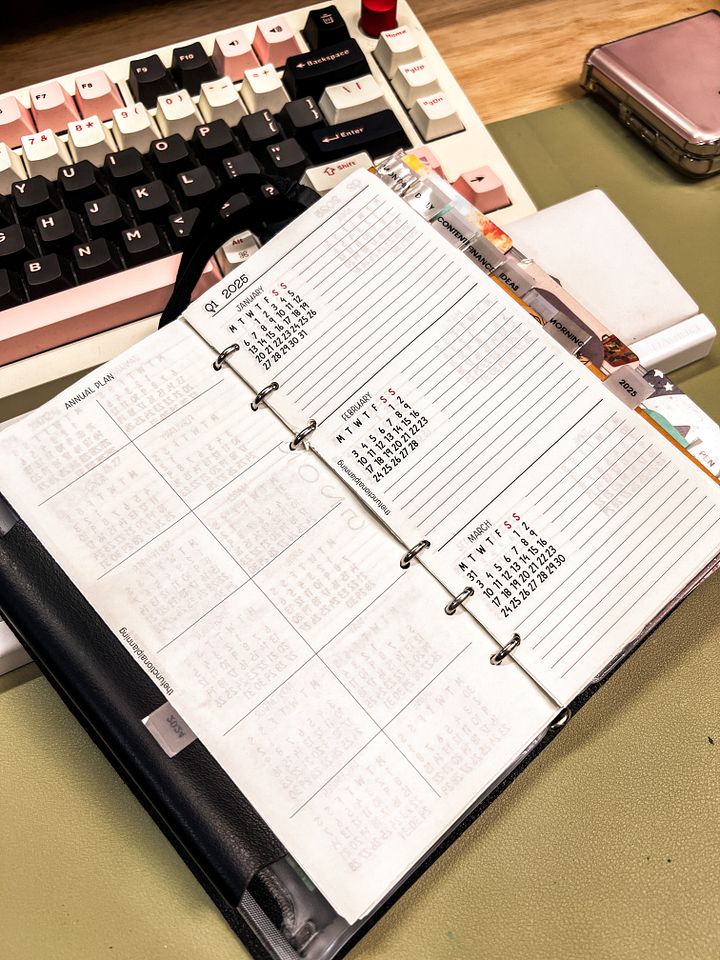 F7 F8 F9 F10
Home
PgUp
PgDn
7 & 8 * 9 ( 0 ) - _ = + ← Backspace
Y U I O P [ { ] } \ |
G H J K L ; : ' " ← Enter
B N M < > ? ⇧ Shift
Alt
⌘
→
ANNUAL PLAN
thefunctionalplanning
2024
Q1 2025
JANUARY
M T W T F S S
1 2 3 4 5
6 7 8 9 10 11 12
13 14 15 16 17 18 19
20 21 22 23 24 25 26
27 28 29 30 31
FEBRUARY
M T W T F S S
1 2
3 4 5 6 7 8 9
10 11 12 13 14 15 16
17 18 19 20 21 22 23
24 25 26 27 28
thefunctionalplanning
MARCH
M T W T F S S
31 1 2
3 4 5 6 7 8 9
10 11 12 13 14 15 16
17 18 19 20 21 22 23
24 25 26 27 28 29 30
CONTENT
FINANCE
IDEAS
MORNING
2025
PEN